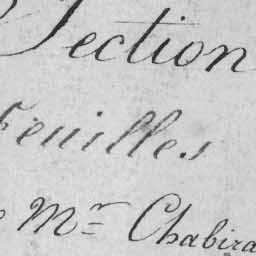 Section
Feuilles
Mr Chabira